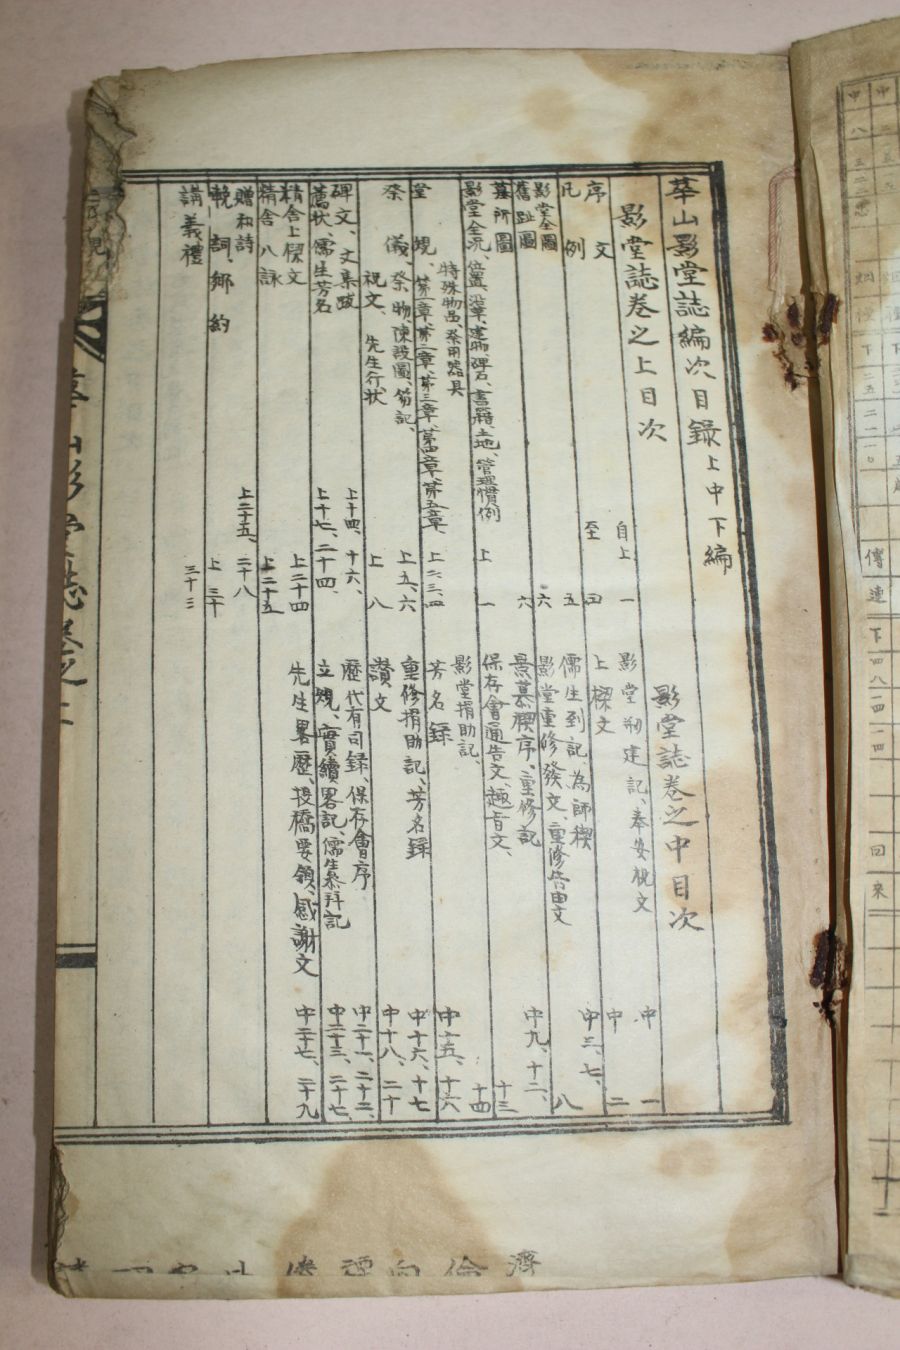 華山影堂誌編次目錄 上中下編
影堂誌卷之上目次
序文 自上 一 至 四
凡例 五
影堂全圖 六
舊趾圖 六
墓所圖
影堂全況、位置、沿革、建物、碑石、書籍、土地、管理慣例 上 一
特殊物品、祭用器具
堂規、第一章、第二章、第三章、第四章、第五章、 上二、三、四
祭儀、祭物、陳設圖、笏記、 上五、六
祝文、先生行狀 上 八
碑文、文集跋 上十四、十六、
薦狀、儒生芳名 上十七、二十四、
精舍上樑文 上二十四
精舍八詠 上二十五
贈和詩 上二十五、二十八
輓詞、鄉約 上 三十
講義禮 三十三
影堂誌卷之中目次
影堂刱建記、奉安祝文 中 一
上樑文 中 二
儒生到記、為師稧 中三、七、
影堂重修發文、重修告由文 八
景慕稧序、重修記 中九、十二、
保存會通告文、趣旨文、 十三
影堂捐助記、 十四
芳名錄 中十五、十六
重修捐助記、芳名錄 中十六、十七
讚文 中十八、二十
歷代有司錄、保存會序 中二十一、二十二、
立規、實績畧記、儒生慕拜記 中二十三、二十七、
先生畧歷、投橋要領、感謝文 中二十七、二十九
華山影堂誌卷之上
濟倫向
中 八
傳 連 下
回 來